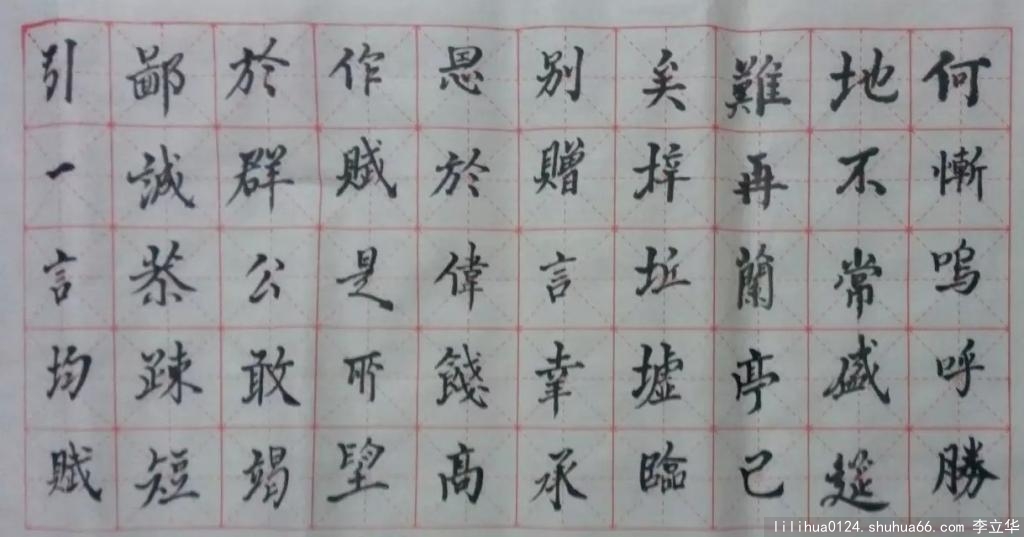 何慚嗚呼勝
地不常盛筵
難再蘭亭已
矣梓坵墟臨
别贈言幸承
恩於偉餞高
作賦是所望
於群公敢竭
鄙誠恭踈短
引一言均賦
lilihua0124.shuhua66.com 李立华